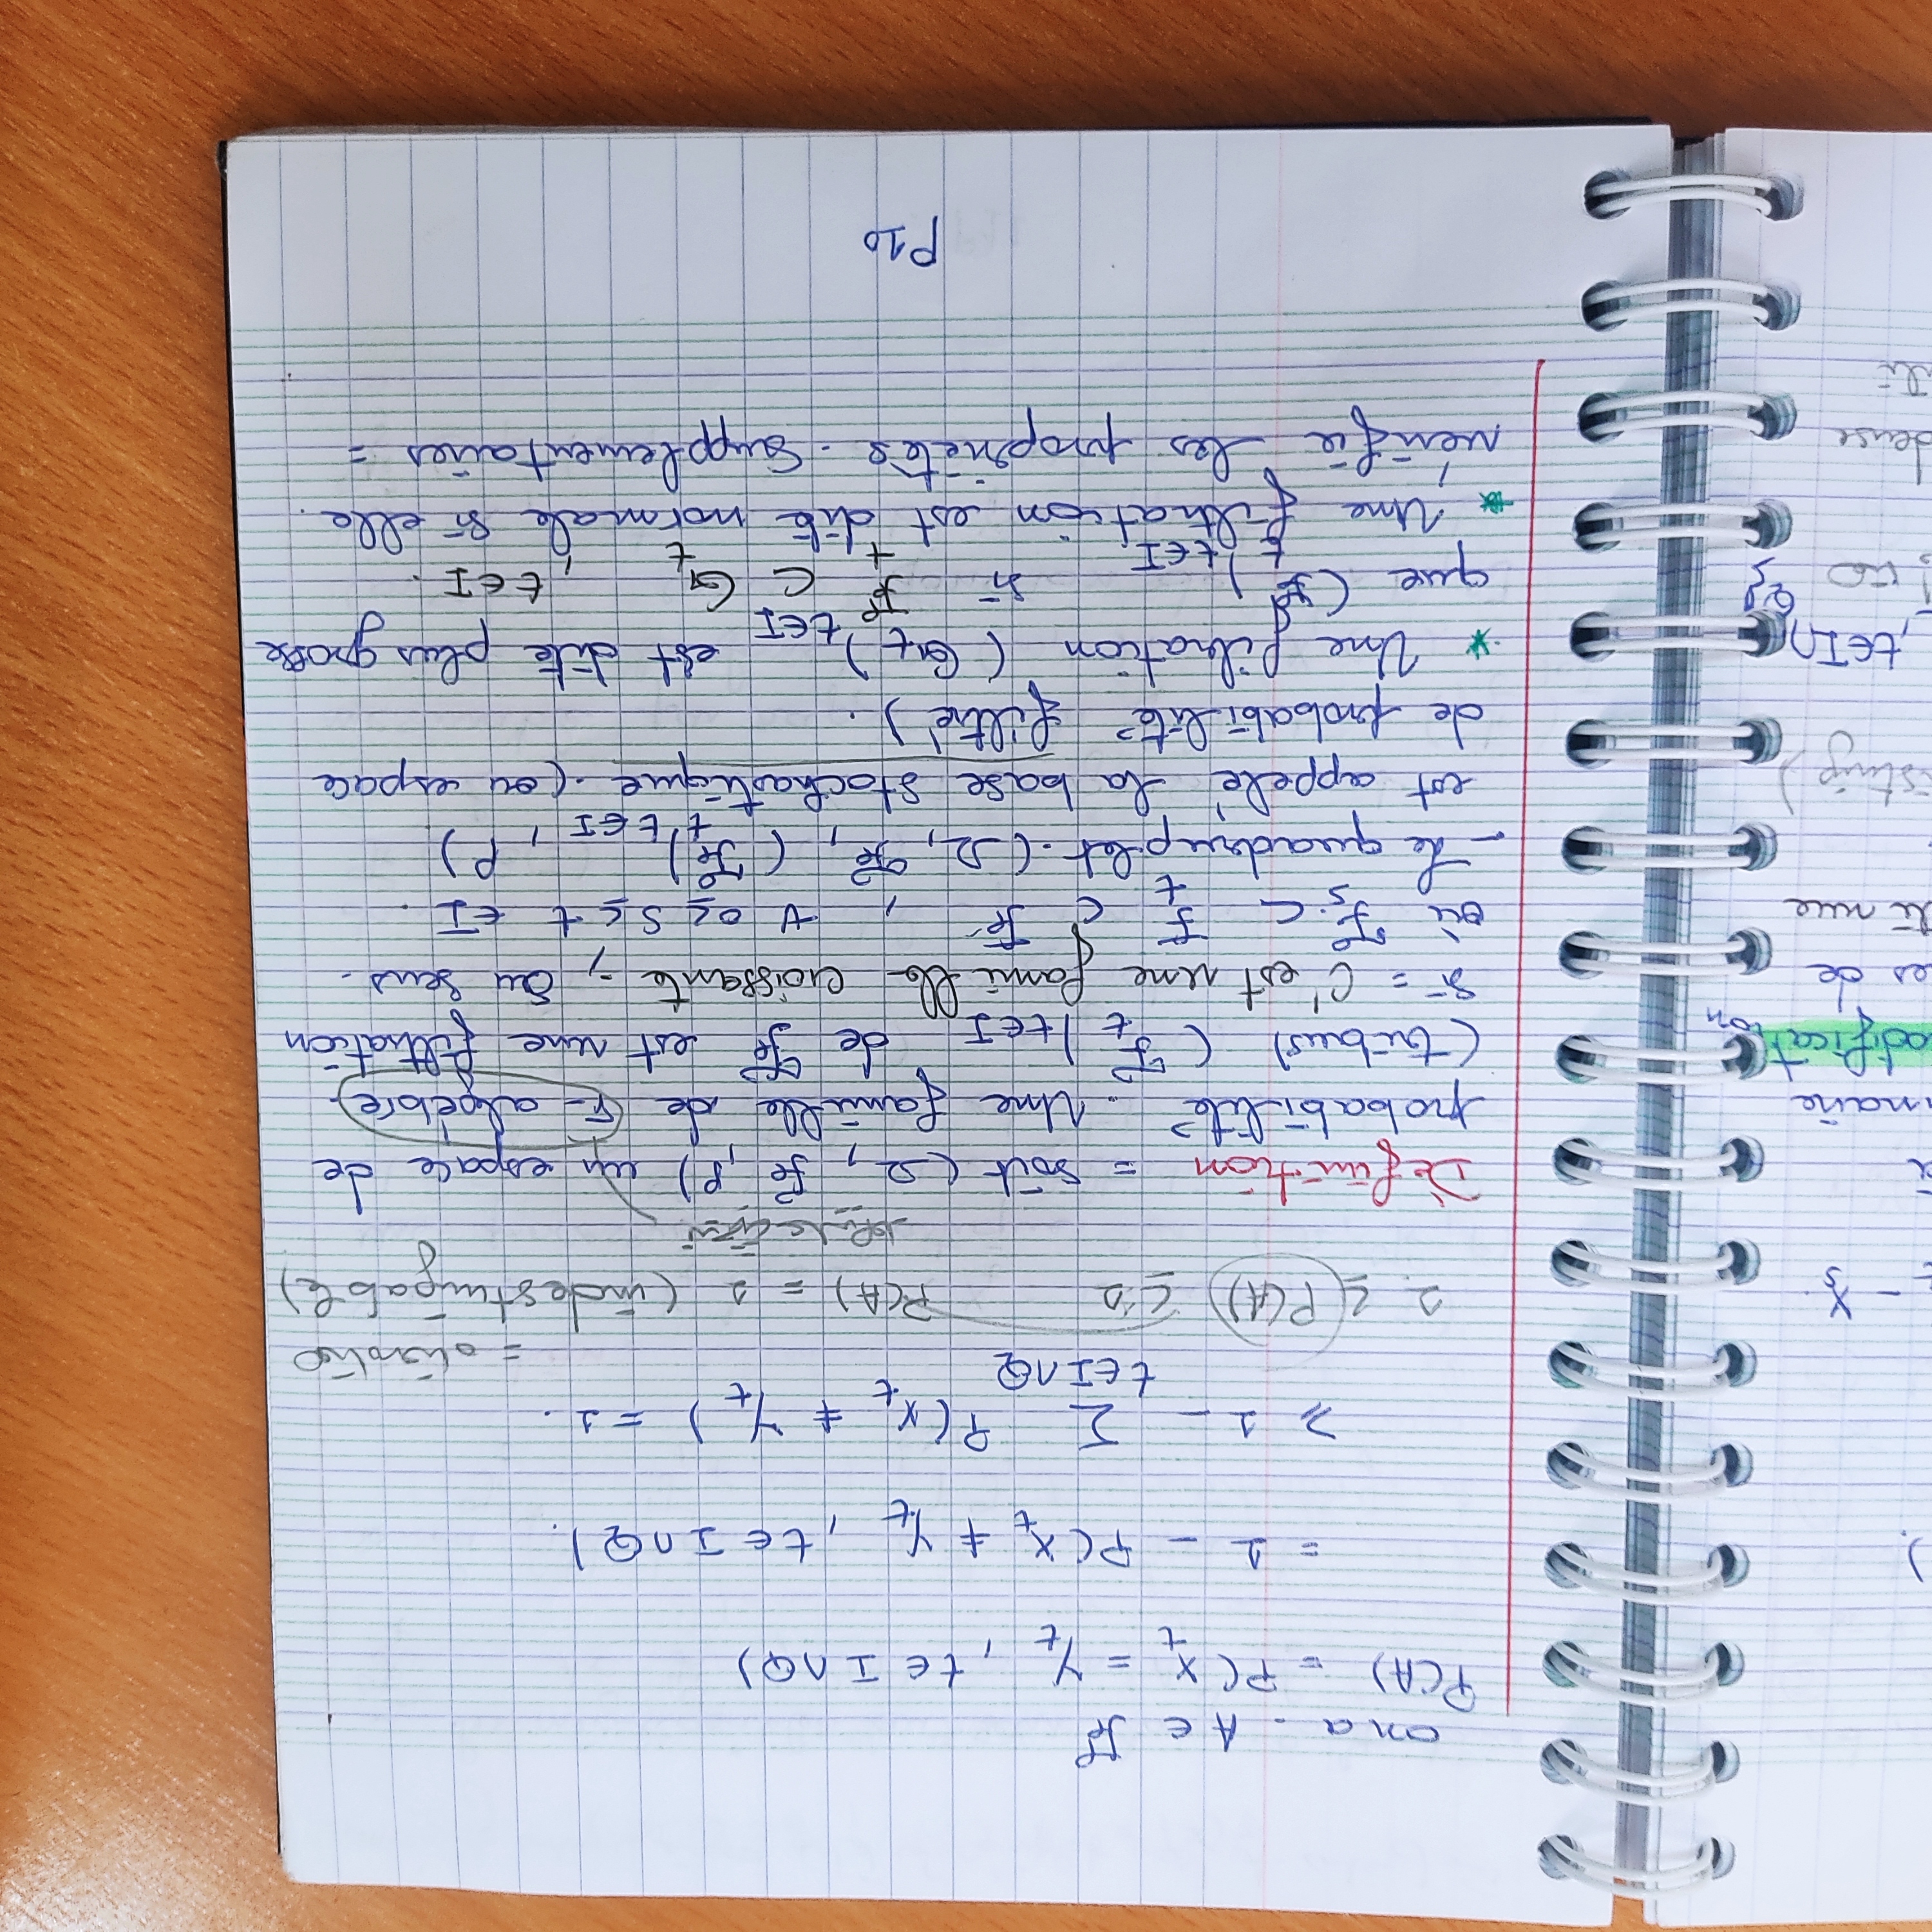 ).
- Xs
nane
odification
es de
tinue
isting)
, t∈I∩
Q}
dense
on a . A ∈ ℱ
P(A) = P( X_t = Y_t , t ∈ I ∩ Q)
= 1 - P( X_t ≠ Y_t , t ∈ I ∩ Q).
≥ 1 - Σ_{t∈I∩Q} P( X_t ≠ Y_t ) = 1 .
1 ≤ P(A) ≤ 1 P(A) = 1 (indestingable)
Définition = soit (Ω, ℱ, P) un espace de
probabilité . Une famille de σ- algébre
(tribus) (ℱ_t)_{t∈I} de ℱ est une filtration
si = C'est une famille croissante , Au sens
où ℱ_s ⊂ ℱ_t ⊂ ℱ , ∀ 0 ≤ s ≤ t ∈ I .
- Le quadruplet (Ω, ℱ, (ℱ_t)_{t∈I}, P)
est appelé la base stochastique . (ou espace
de probabilité filtré) .
* Une filration (G_t)_{t∈I} est dite plus grosse
que (ℱ_t)_{t∈I} si ℱ_t ⊂ G_t , t ∈ I .
* Une filtration est dite normale si elle
vérifie les propriétés . Supplementaires =
P10